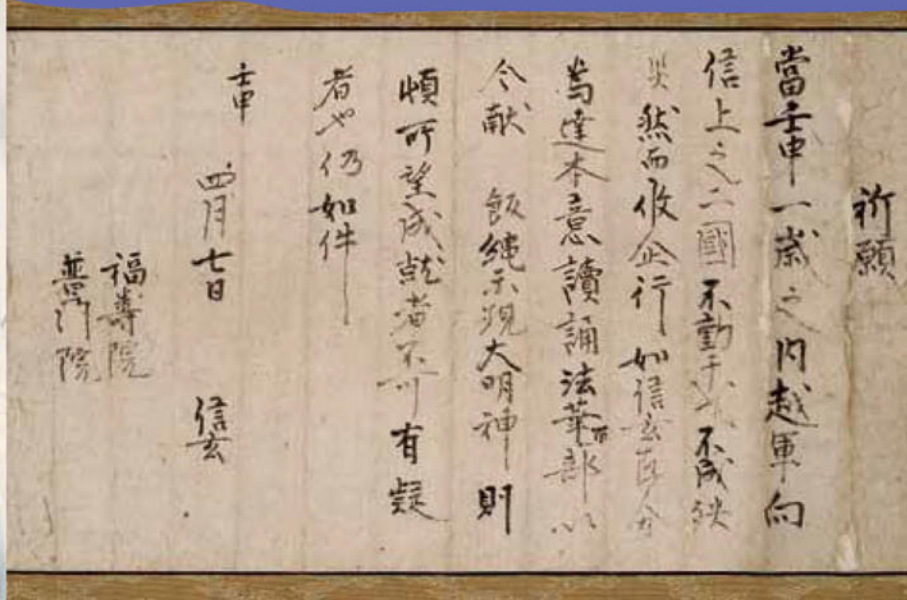 祈願
當壬申一歳之内越軍向
信上之二國不動干戈不成殃
災然而攸企行如信玄存分
為達本意讀誦法華百部以
令献 飯縄示現大明神則
所望成就者不可有疑
者也仍如件
壬申
四月七日 信玄
福壽院
普門院